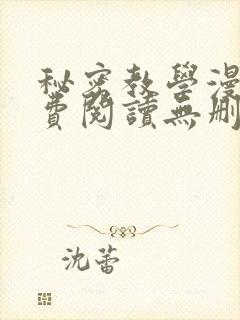 秘密教學漫
費閱讀無刪
沈蕾